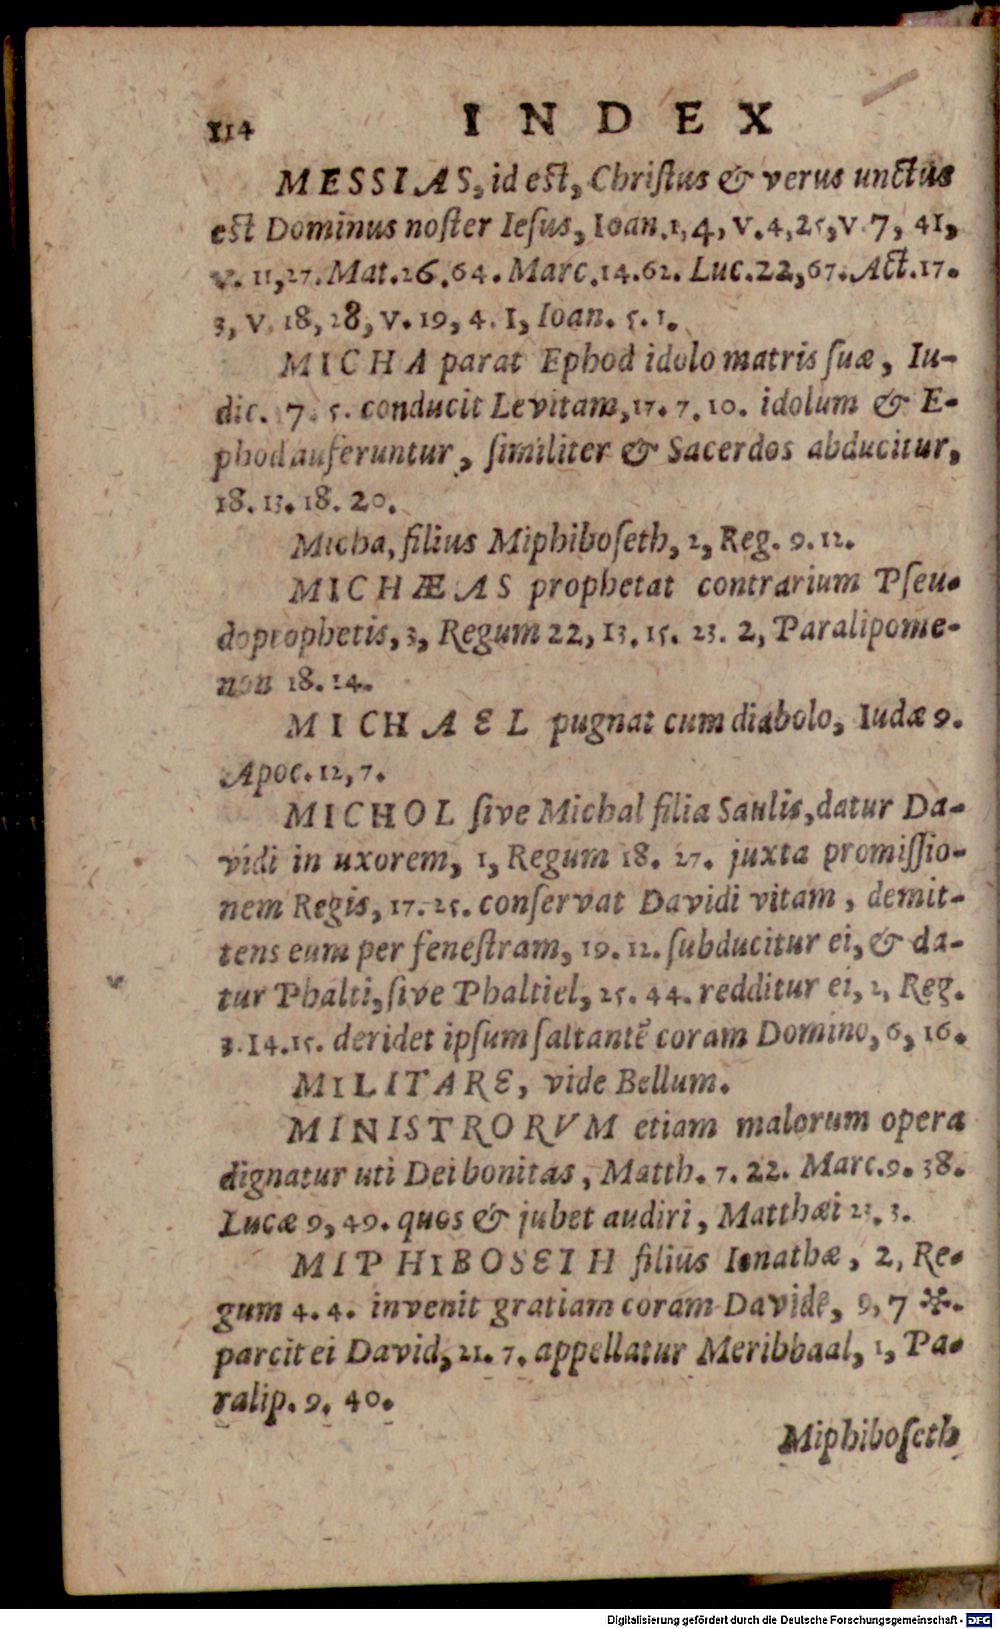 114 INDEX
MESSIAS, id est, Christus & verus unctus
est Dominus noster Iesus, Ioan.1,4, v.4,25, v.7, 41,
v. 11,27. Mat.26.64. Marc.14.62. Luc.22,67. Act.17.
3, v. 18, 28, v. 19, 4. 1, Ioan. 5. 1.
MICHA parat Ephod idolo matris suæ, Iu-
dic. 7. 5. conducit Levitam, 17. 7. 10. idolum & E-
phod auferuntur, similiter & Sacerdos abducitur,
18. 13. 18. 20.
Micha, filius Miphiboseth, 2, Reg. 9. 12.
MICHÆAS prophetat contrarium Pseu-
doprophetis, 3, Regum 22, 13. 15. 23. 2, Paralipome-
non 18. 14.
MICHAEL pugnat cum diabolo, Iudæ 9.
Apoc. 12, 7.
MICHOL sive Michal filia Saulis, datur Da-
vidi in uxorem, 1, Regum 18. 27. juxta promissio-
nem Regis, 17. 25. conservat Davidi vitam, demit-
tens eum per fenestram, 19. 12. subducitur ei, & da-
tur Phalti, sive Phaltiel, 25. 44. redditur ei, 2, Reg.
3. 14. 15. deridet ipsum saltantẽ coram Domino, 6, 16.
MILITARE, vide Bellum.
MINISTRORVM etiam malorum opera
dignatur uti Dei bonitas, Matth. 7. 22. Marc. 9. 38.
Lucæ 9, 49. quos & jubet audiri, Matthæi 23. 3.
MIPHIBOSETH filius Ionathæ, 2, Re-
gum 4. 4. invenit gratiam coram Davide, 9, 7 ✻.
parcit ei David, 21. 7. appellatur Meribbaal, 1, Pa-
ralip. 9. 40.
Miphiboseth
Digitalisierung gefördert durch die Deutsche Forschungsgemeinschaft - DFG